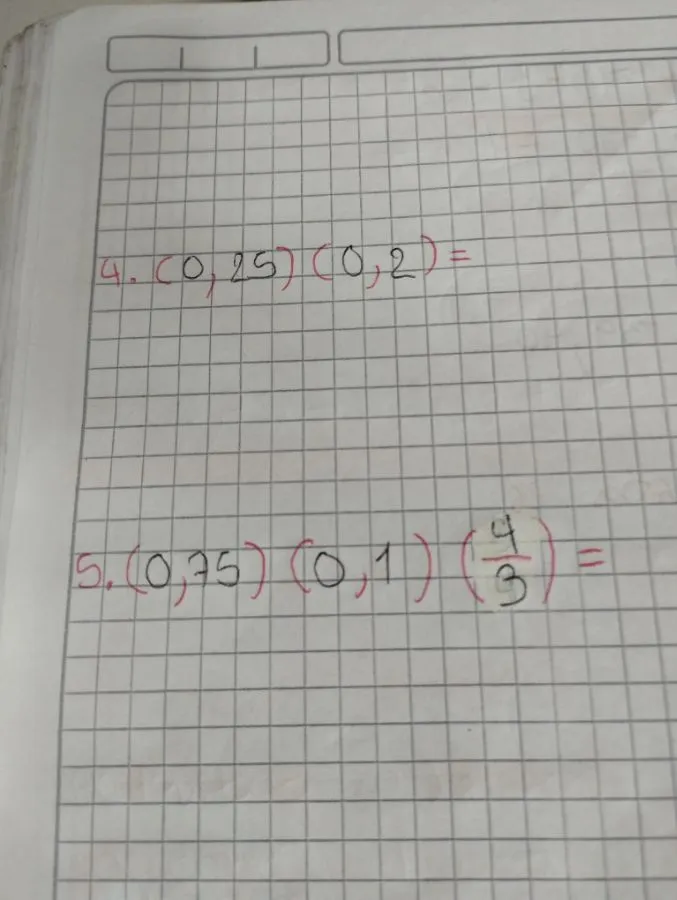 4. (0,25) (0,2) =
5. (0,75) (0,1) (4/3) =